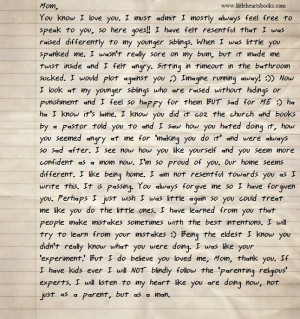 www.littleheartsbooks.com
Mom,
You know I love you. I must admit I mostly always feel free to
speak to you, so here goes!! I have felt resentful that I was
raised differently to my younger siblings. When I was little you
spanked me. I wasn't really sore on my bum, but it made me
twist inside and I felt angry. Sitting in timeout in the bathroom
sucked. I would plot against you ;) Imagine running away! :)) Now
I look at my younger siblings who are raised without hidings or
punishment and I feel so happy for them BUT sad for ME :) ha
ha I know it's lame. I know you did it coz the church and books
by a pastor told you to and I saw how you hated doing it, how
you seemed angry at me for 'making you do it' and were always
so sad after. I see now how you like yourself and you seem more
confident as a mom now. I'm so proud of you. Our home seems
different. I like being home. I am not resentful towards you as I
write this. It is passing. You always forgive me so I have forgiven
you. Perhaps I just wish I was little again so you could treat
me like you do the little ones. I have learned from you that
people make mistakes sometimes with the best intentions. I will
try to learn from your mistakes :) Being the eldest I know you
didn't really know what you were doing. I was like your
'experiment.' But I do believe you loved me, Mom, thank you. If
I have kids ever I will NOT blindly follow the 'parenting religous'
experts. I will listen to my heart like you are doing now, not
just as a parent, but as a man.